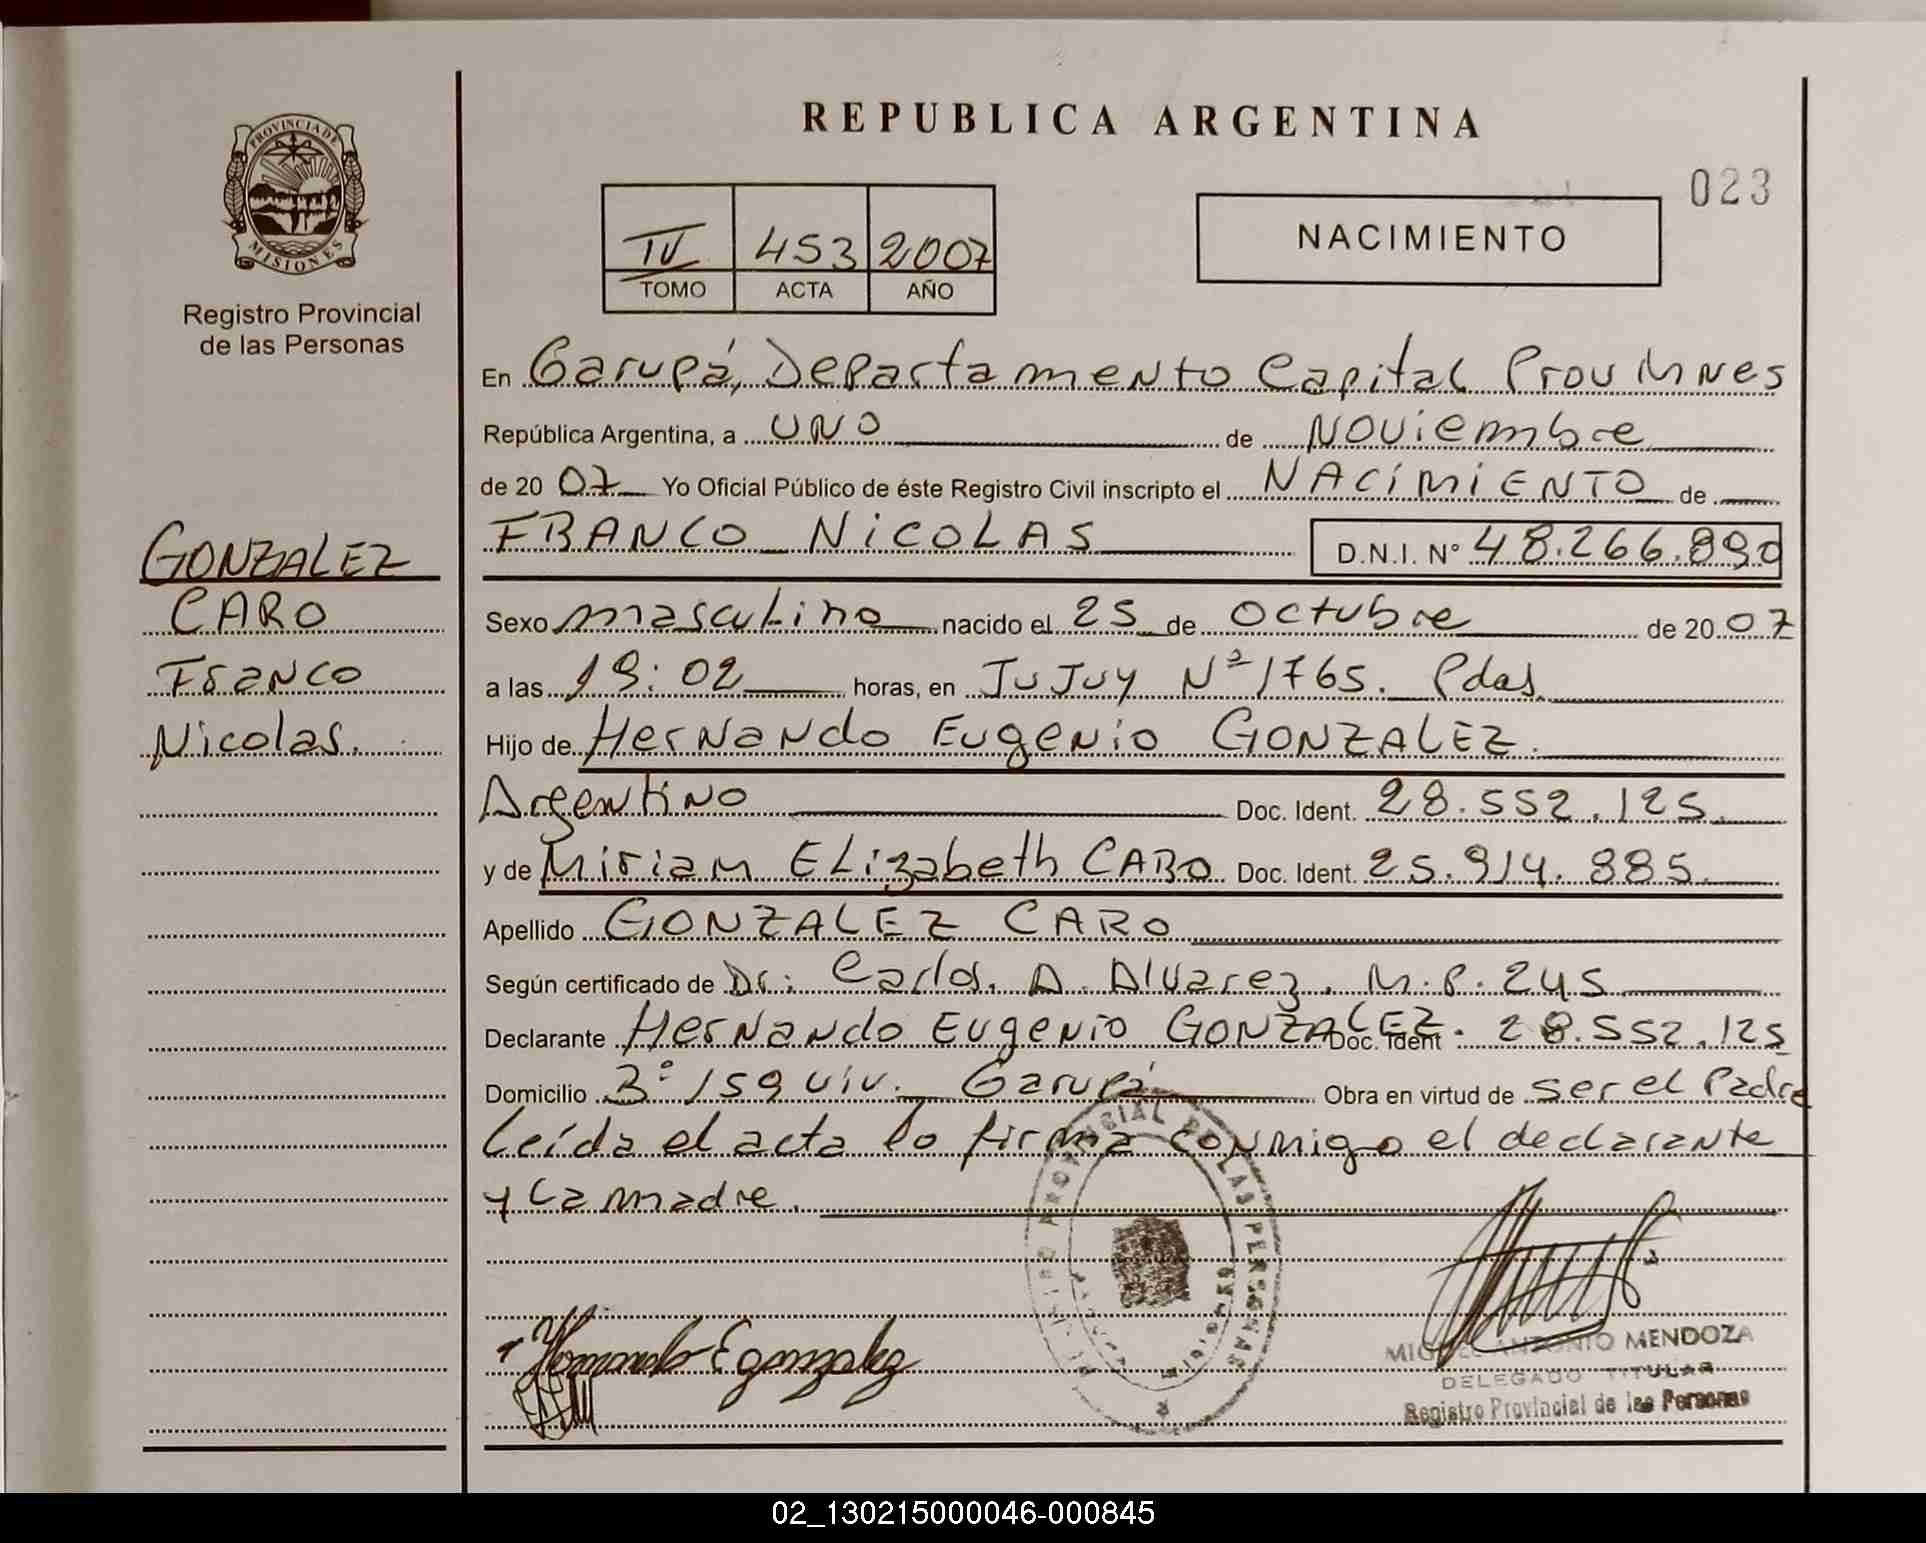 REPUBLICA ARGENTINA
023
PROVINCIA DE MISIONES
Registro Provincial
de las Personas
IV 453 2007
TOMO ACTA AÑO
NACIMIENTO
En Garupá, Departamento Capital Prov Mnes
República Argentina, a uno de Noviembre
de 20 07 Yo Oficial Público de éste Registro Civil inscripto el NACIMIENTO de
FRANCO NICOLAS D.N.I. N° 48.266.890
GONZALEZ
CARO
Franco
Nicolas.
Sexo masculino nacido el 25 de octubre de 20 07
a las 19:02 horas, en JuJuy Nº 1765. Pdas.
Hijo de Hernando Eugenio GONZALEZ.
Argentino Doc. Ident. 28.552.125.
y de Miriam ELizabeth CARO Doc. Ident. 25.914.885.
Apellido GONZALEZ CARO
Según certificado de Dr: Carlos. A. Alvarez. M.P. 245
Declarante Hernando Eugenio GONZALEZ. Doc. Ident 28.552.125
Domicilio 3° 159 viv. Garupá Obra en virtud de ser el Padre
Leída el acta lo firma conmigo el declarante
y La madre.
REGISTRO PROVINCIAL DE LAS PERSONAS
Hernando E gonzalez
MIGUEL ANTONIO MENDOZA
DELEGADO TITULAR
Registro Provincial de las Personas
02_130215000046-000845